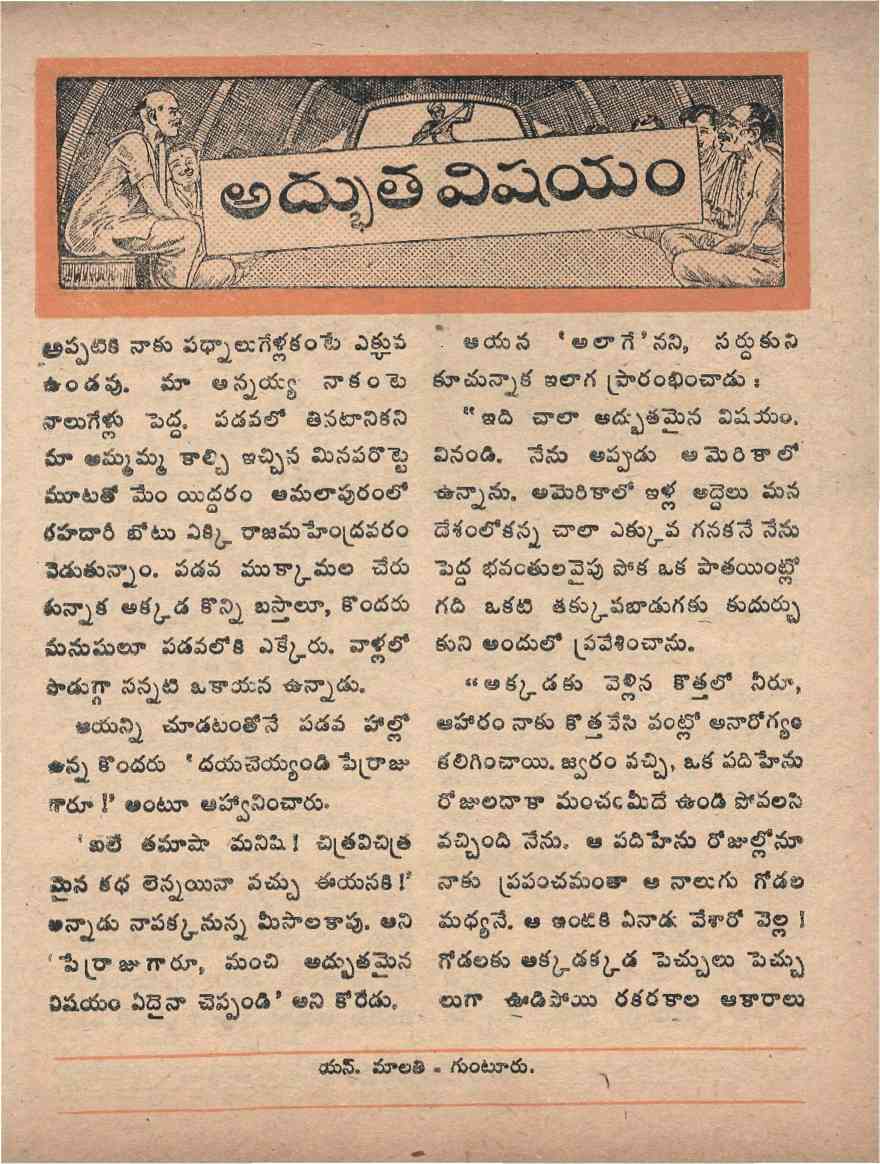 అద్భుత విషయం
అప్పటికి నాకు పధ్నాలుగేళ్లకంటే ఎక్కువ
ఉండవు. మా అన్నయ్య నాకంటె
నాలుగేళ్లు పెద్ద. పడవలో తినటానికని
మా అమ్మమ్మ కాల్చి ఇచ్చిన మినపరొట్టె
మూటతో మేం యిద్దరం అమలాపురంలో
రహదారీ బోటు ఎక్కి రాజమహేంద్రవరం
వెడుతున్నాం. పడవ ముక్కామల చేరు
కున్నాక అక్కడ కొన్ని బస్తాలూ, కొందరు
మనుషులూ పడవలోకి ఎక్కేరు. వాళ్లలో
పొడుగ్గా సన్నటి ఒకాయన ఉన్నాడు.
ఆయన్ని చూడటంతోనే పడవ హాల్లో
ఉన్న కొందరు ‘దయచెయ్యండి పేర్రాజు
గారూ !’ అంటూ ఆహ్వానించారు.
‘ఐలే తమాషా మనిషి! చిత్రవిచిత్ర
మైన కధ లెన్నయినా వచ్చు ఈయనకి!’
అన్నాడు నాపక్కనున్న మీసాలకాపు. అని
‘పేర్రాజుగారూ, మంచి అద్భుతమైన
విషయం ఏదైనా చెప్పండి’ అని కోరేడు.
ఆయన ‘అలాగే’నని, సర్దుకుని
కూచున్నాక ఇలాగ ప్రారంభించాడు :
“ఇది చాలా అద్భుతమైన విషయం.
వినండి. నేను అప్పుడు అమెరికాలో
ఉన్నాను. అమెరికాలో ఇళ్ల అద్దెలు మన
దేశంలోకన్న చాలా ఎక్కువ గనకనే నేను
పెద్ద భవంతులవైపు పోక ఒక పాతయింట్లో
గది ఒకటి తక్కువబాడుగకు కుదుర్చు
కుని అందులో ప్రవేశించాను.
“అక్కడకు వెళ్లిన కొత్తలో నీరూ,
ఆహారం నాకు కొత్తవేసి వంట్లో అనారోగ్యం
కలిగించాయి. జ్వరం వచ్చి, ఒక పదిహేను
రోజులదాకా మంచంమీదే ఉండి పోవలసి
వచ్చింది నేను. ఆ పదిహేను రోజుల్లోనూ
నాకు ప్రపంచమంతా ఆ నాలుగు గోడల
మధ్యనే. ఆ ఇంటికి ఏనాడు వేశారో వెల్ల !
గోడలకు అక్కడక్కడ పెచ్చులు పెచ్చు
లుగా ఊడిపోయి రకరకాల ఆకారాలు
యన్. మాలతి - గుంటూరు.